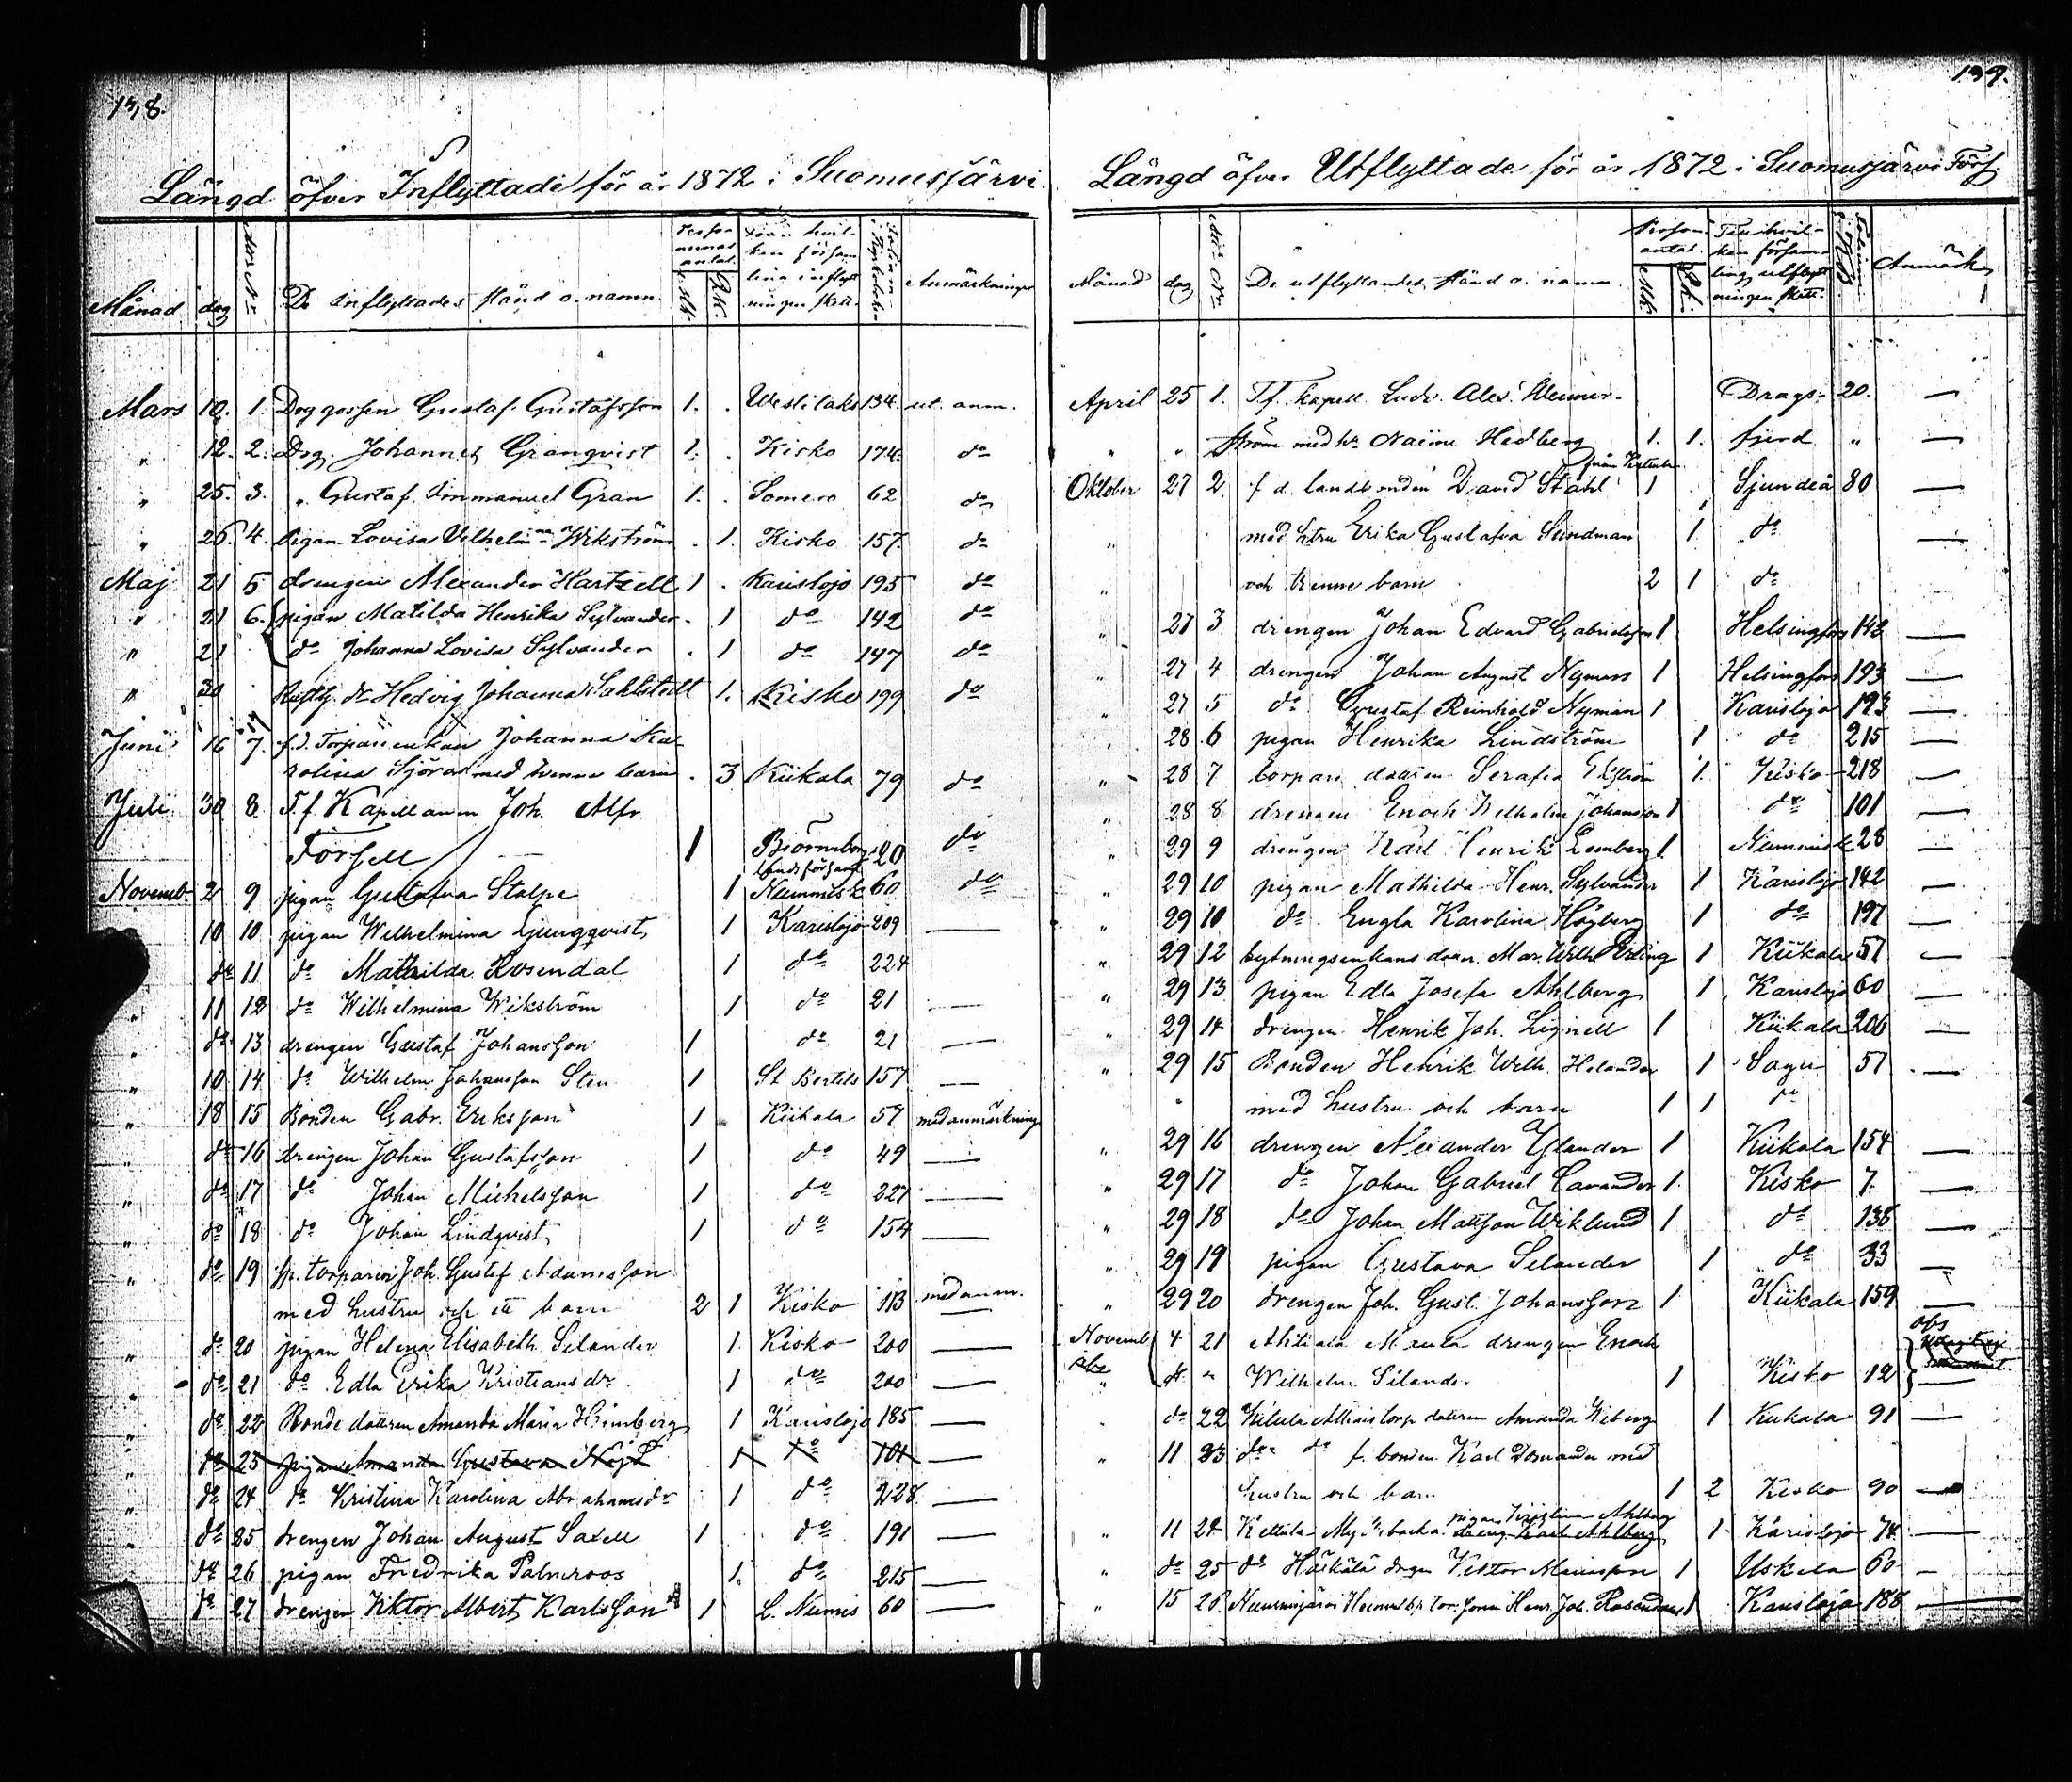 138.
Längd öfver Inflyttade för år 1872 i Suomusjärvi.
Månad dag N:o De Inflyttades stånd o. namn. Personernas antal Mk. Qk. Från hvilken församling inflyttningen skett. Anmärkningar
Mars 10. 1. Drggossen Gustaf Gustafsson 1. Westilaks 134. ut. anm.
" 12. 2. Drg. Johannes Granqvist 1. Kisko 174. do
" 25. 3. " Gustaf Immanuel Gran 1. Somero 62 do
" 26. 4. Pigan Lovisa Vilhelmina Wikström 1. Kisko 157. do
Maj 21 5 drengen Alexander Hartzell 1 Karislojo 195 do
" 21 6. pigan Matilda Henrika Sylvander 1 do 142 do
" 21 do Johanna Lovisa Sylvander 1 do 147 do
" 30 Rusth. dr Hedvig Johanna Sahlstedt 1. Kisko 199 do
Juni 16 7. f.d. Torparienkan Johanna Ka-
rolina Sjöros med tvenne barn 3 Kiikala 79 do
Juli 30 8. T.f. Kapellanen Joh. Alfr.
Forsell 1 Björneborgs landsförsaml 20 do
Novemb. 2 9 pigan Gustafva Stolpe 1 Nummis k. 60 do
10 10 pigan Wilhelmina Ljungqvist 1 Karislojo 209 —
" do 11 do Mathilda Rosendal 1 do 224
" 11 12 do Wilhelmina Wikström 1 do 21 —
" do 13 drengen Gustaf Johansson 1 do 21 —
" 10 14 do Wilhelm Johansson Sten 1 St Bertils 157 —
" 18 15 Bonden Gabr. Eriksson 1 Kiikala 57 med anmärkning
" do 16 drengen Johan Gustafsson 1 do 49 —
" do 17 do Johan Michelsson 1 do 227 —
" do 18 do Johan Lindqvist 1 do 154 —
" do 19 fr. torparen Joh. Gustaf Adamsson
med hustru och ett barn 2 1 Kisko 113 med anm.
" do 20 pigan Helena Elisabeth Silander 1. Kisko 200 —
" do 21 do Edla Erika Kristiansdr 1 do 200 —
" do 22 Bonde dottren Amanda Maria Heimberg 1 Karislojo 185 —
" do 23 pigan Amanda Gustava Nejd 1 do 101 —
" do 24 do Kristina Karolina Abrahamsdr 1 do 228 —
" do 25 drengen Johan August Saxell 1 do 191 —
do 26 pigan Fredrika Palmroos 1. do 215 —
do 27 drengen Viktor Albert Karlsson 1 L. Numis 60 —
139.
Längd öfver Utflyttade för år 1872 i Suomusjärvi Förs.
Månad dag N:o De utflyttandes stånd o. namn. Person antal Mk. Qk. Till hvilken församling utflyttningen skett. Anmärk.
April 25 1. T.f. kapell. Ludv. Alex. Klemer- Drags- 20. —
" " ström med hu Naëme Hedberg 1. 1. fjerd " —
Oktober 27 2. f.d. landbonden David Ståhl 1 Sjundeå 80 —
" med hstru Erika Gustafva Sundman 1 do —
" och trenne barn 2 1 do
" 27 3 drengen Johan Edvard Gabrielsson 1 Helsingfors 142 —
27 4 drengen Johan August Nyman 1 Helsingfors 193 —
" 27 5 do Gustaf Reinhold Nyman 1 Karislojo 193 —
" 28 6 pigan Henrika Lindström 1 do 215 —
" 28 7 torpare dottren Serafia Ekström 1. Kisko 218 —
" 28 8 drengen Enoch Wilhelm Johansson 1 do 101 —
" 29 9 drengen Karl Henrik Lemberg 1. Nummis k. 28 —
" 29 10 pigan Mathilda Henr. Sylvander 1 Karislojo 142 —
" 29 10 do Engla Karolina Högberg 1 do 197 —
" 29 12 bytningsenkans dottr. Mar. Wilh. Erling 1 Kiikala 57 —
" 29 13 pigan Edla Josefa Ahlberg 1 Karislojo 60 —
" 29 14 drengen Henrik Joh. Lignell 1 Kiikala 206 —
" 29 15 Bonden Henrik Wilh. Helander 1 Sagu 57 —
" med hustru och barn 1 1 do
" 29 16 drengen Alexander Ylander 1 Kiikala 154 —
" 29 17 do Johan Gabriel Cavander 1. Kisko 7. —
" 29 18 do Johan Mattsson Wiklund 1 do 138 —
" 29 19 pigan Gustava Selander 1 do 33 —
" 29 20 drengen Joh. Gust. Johansson 1 Kiikala 159 —
Novemb 4 21 Ahtiala Maula drengen Enoch obs
obs " Wilhelm Silander 1 Kisko 12 —
do 22 torp dottren Amanda Wiberg 1 Kiikala 91 —
" 11 23 do do f. bonden Karl Vomander med
hustru och barn 1 2 Kisko 90 —
" 11 24 Kettula backa pigan Kristina Ahlberg dreng Karl Ahlberg 1 Karislojo 74 —
" do 25 do Härkälä dregn Viktor 1 Uskela 60 —
" 15 26 Nummijärvi Henr. Joh. Rosendal 1 Karislojo 188 —